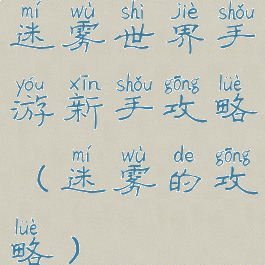 mí wù shì jiè shǒu
迷雾世界手
yóu xīn shǒu gōng lüè
游新手攻略
mí wù de gōng
（迷雾的攻
lüè
略）